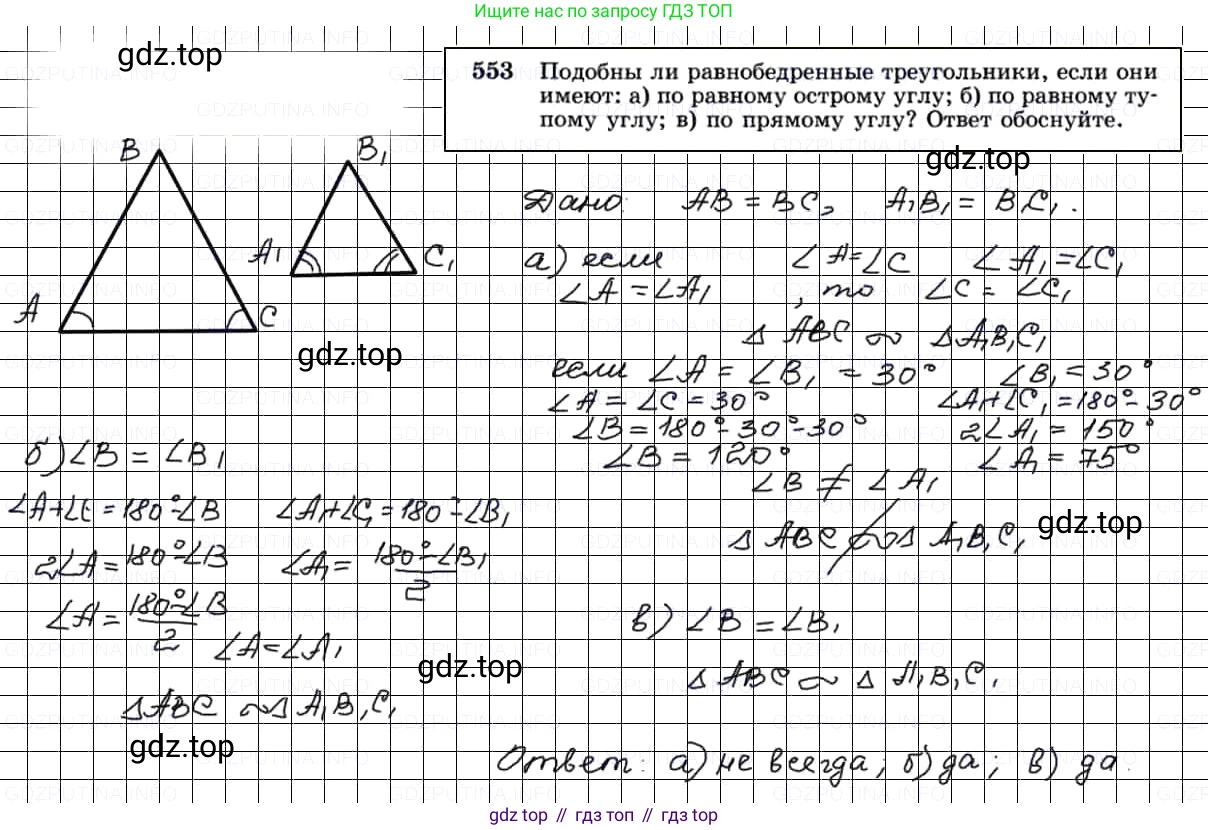 Ищите нас по запросу ГДЗ ТОП
gdz.top
553 Подобны ли равнобедренные треугольники, если они
имеют: а) по равному острому углу; б) по равному ту-
пому углу; в) по прямому углу? Ответ обоснуйте.
gdz.top
B
B₁
A₁
C₁
A
C
gdz.top
Дано: AB = BC, A₁B₁ = B₁C₁.
а) если ∠A = ∠C ∠A₁ = ∠C₁
∠A = ∠A₁, то ∠C = ∠C₁
△ ABC ∾ △ A₁B₁C₁
если ∠A = ∠B₁ = 30° ∠B₁ = 30°
∠A = ∠C = 30° ∠A₁+∠C₁ = 180° - 30°
∠B = 180° - 30° - 30° 2∠A₁ = 150°
∠B = 120° ∠A₁ = 75°
∠B ≠ ∠A₁
△ ABC ≁ △ A₁B₁C₁
gdz.top
б) ∠B = ∠B₁
∠A+∠C = 180° - ∠B ∠A₁+∠C₁ = 180° - ∠B₁
2∠A = 180° - ∠B ∠A₁ = (180° - ∠B₁)/2
∠A = (180° - ∠B)/2
∠A = ∠A₁
△ABC ∾ △ A₁B₁C₁
gdz.top
gdz.top
в) ∠B = ∠B₁
△ ABC ∾ △ A₁B₁C₁
Ответ: а) не всегда; б) да; в) да.
gdz.top // гдз топ // gdz top
GDZPUTINA.INFO